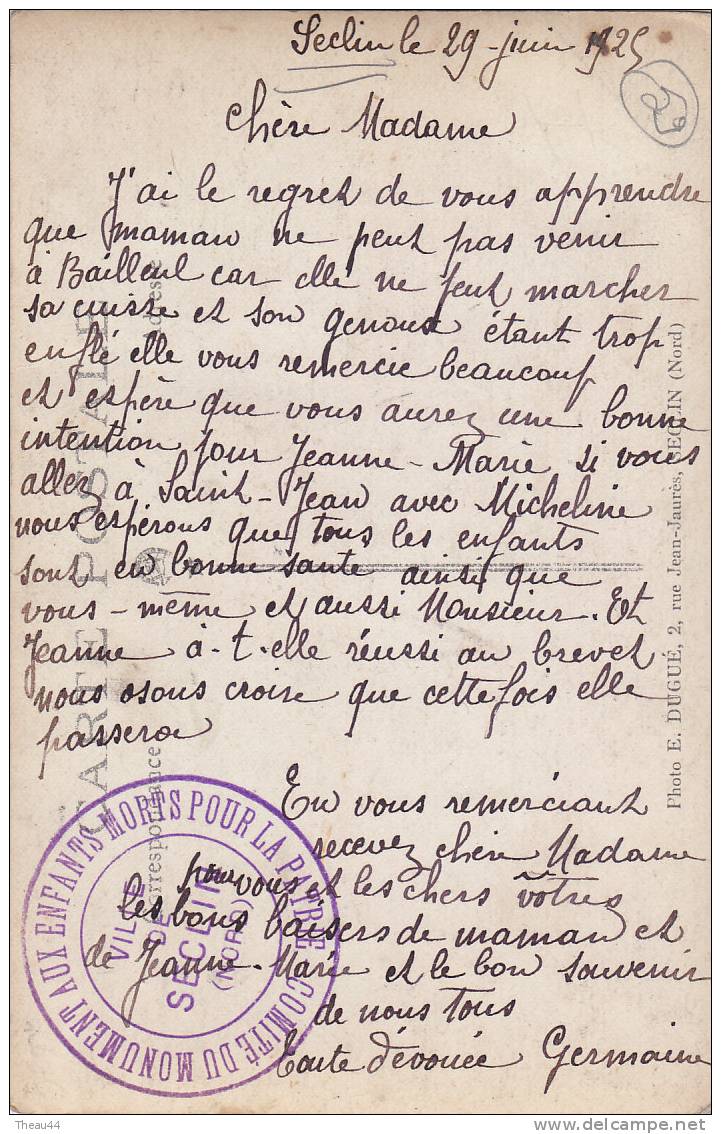 Seclin le 29 juin 1925
Chère Madame
J'ai le regret de vous apprendre
que maman ne peut pas venir
à Bailleul car elle ne peut marcher
sa cuisse et son genoux étant trop
enflé elle vous remercie beaucoup
et espère que vous aurez une bonne
intention pour Jeanne-Marie si vous
allez à Saint-Jean avec Micheline
nous espérons que tous les enfants
sont en bonne sante ainsi que
vous-même et aussi Monsieur. Et
Jeanne à-t-elle réussi au brevet
nous osons croire que cette fois elle
passera
En vous remerciant
recevez chère Madame
pour vous et les chers vôtres
les bons baisers de maman et
de Jeanne-Marie et le bon souvenir
de nous tous
Toute dévouée Germaine
CARTE POSTALE
Correspondance
Adresse
Photo E. DUGUÉ, 2, rue Jean-Jaurès, SECLIN (Nord)
COMITÉ DU MONUMENT AUX ENFANTS MORTS POUR LA PATRIE
VILLE
DE
SECLIN
(NORD)
Theau44
delcampe.net